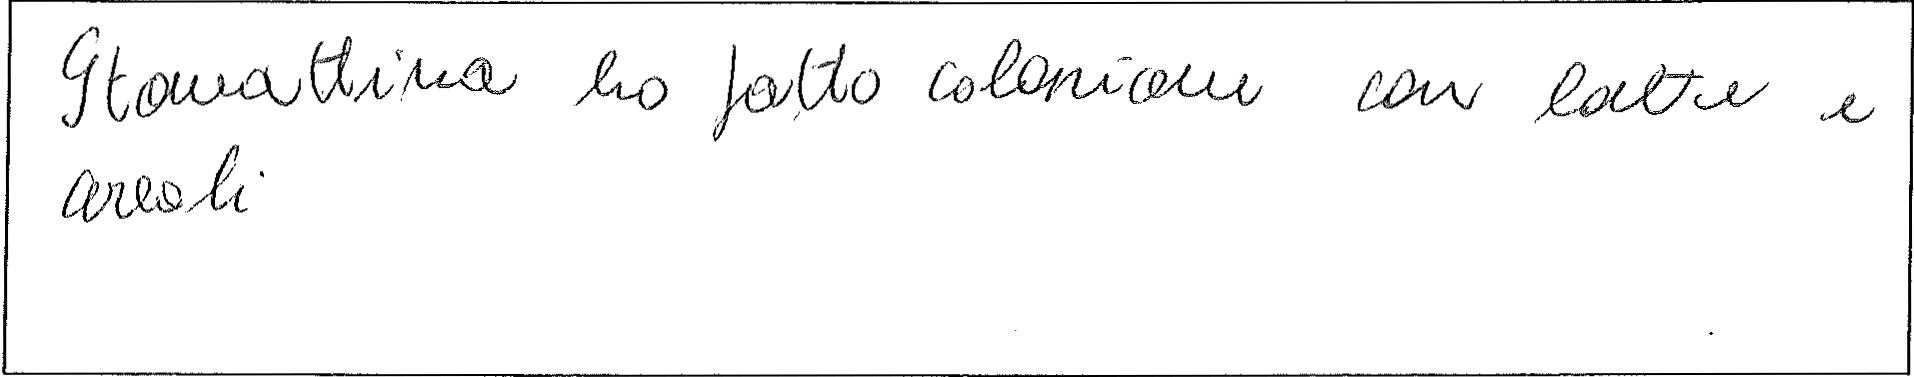 Stamattina ho fatto colazione con latte e
cereali